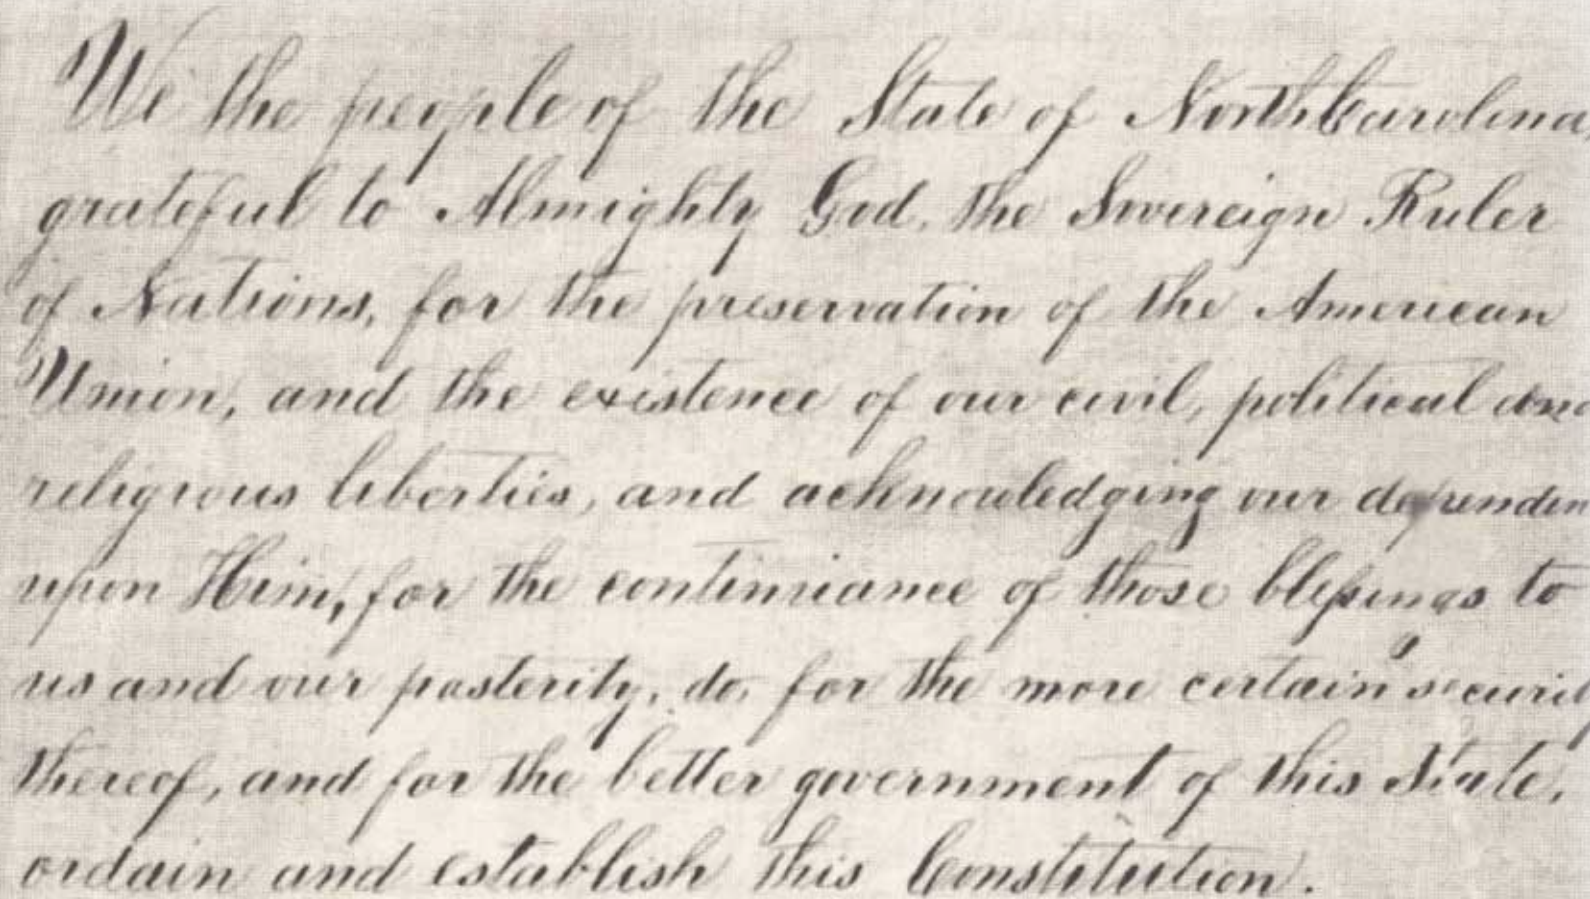 We the people of the State of North Carolina,
grateful to Almighty God, the Sovereign Ruler
of Nations, for the preservation of the American
Union, and the existence of our civil, political and
religious liberties, and acknowledging our dependen
upon Him, for the continuance of those blessings to
us and our posterity, do, for the more certain security
thereof, and for the better government of this State,
ordain and establish this Constitution.